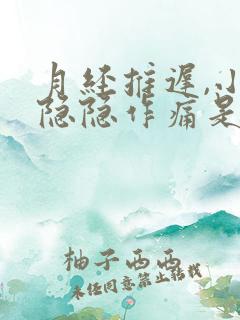 月经推迟,小
隐隐作痛是
柚子西西
未经同意禁止转载